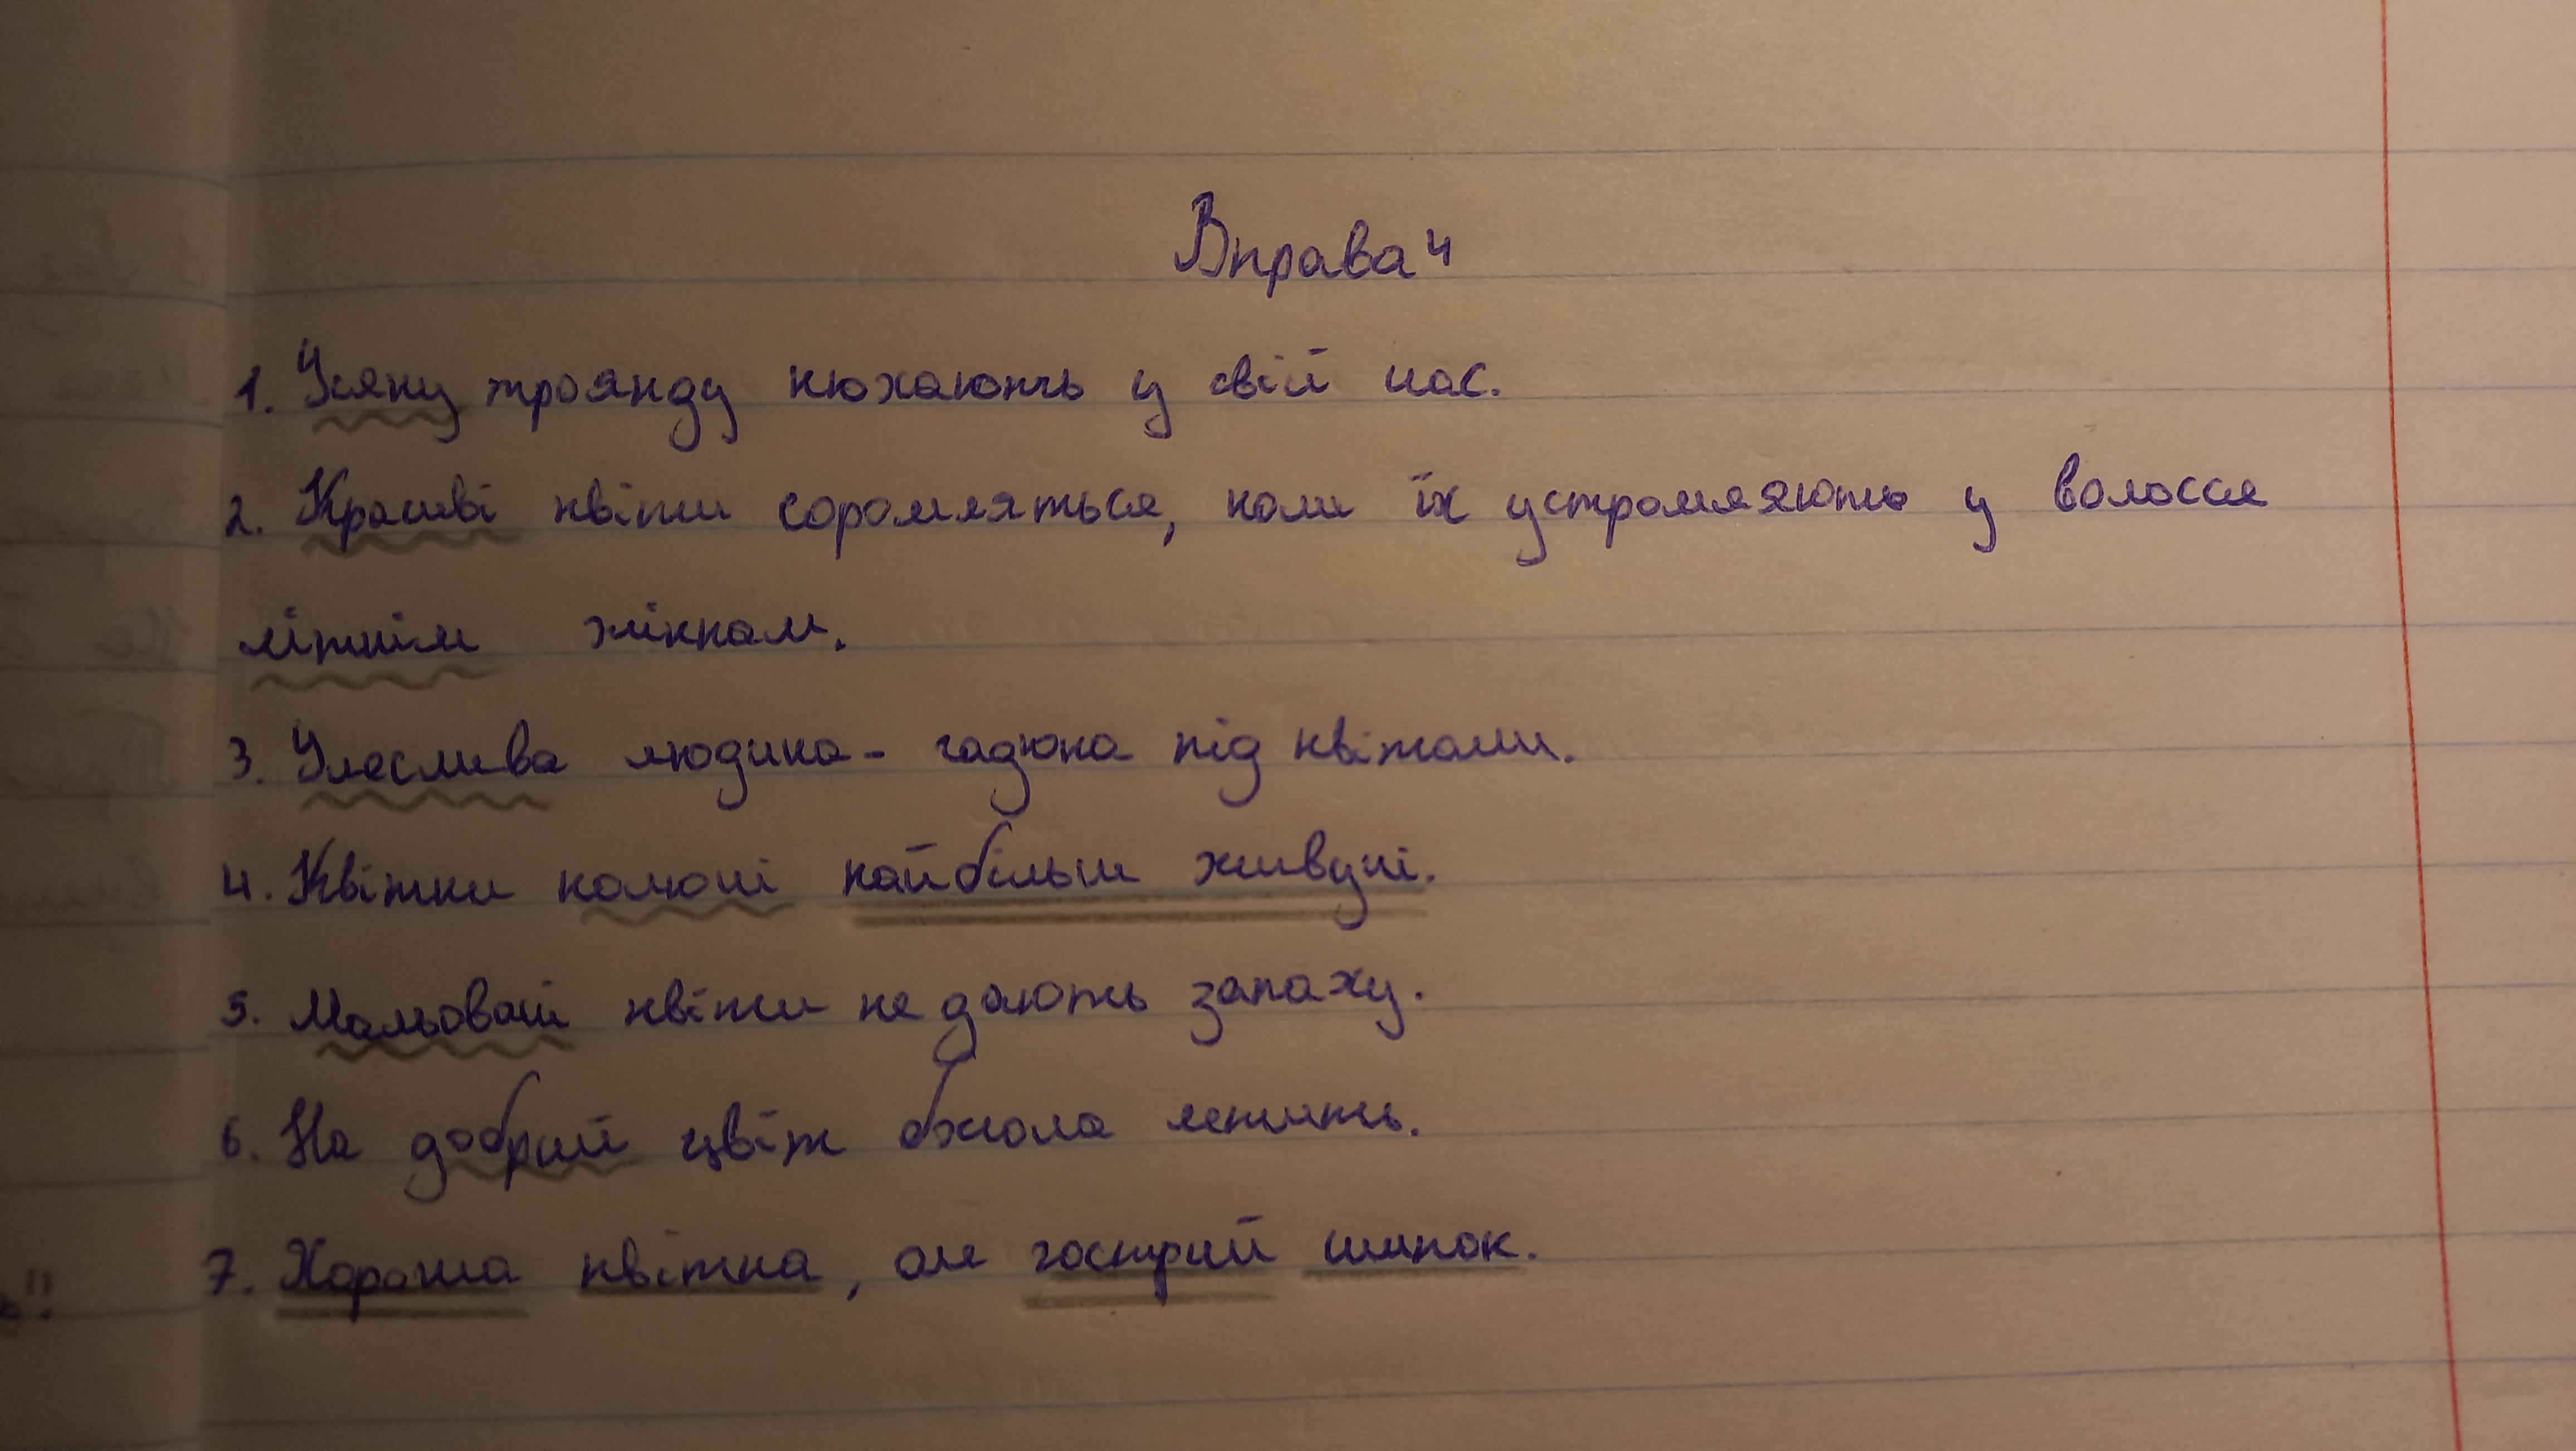 Вправа 4
1. Усяку троянду нюхають у свій час.
2. Красиві квіти соромляться, коли їх устромляють у волосся
літнім жінкам.
3. Улеслива людина - гадюка під квітами.
4. Квітки колючі найбільш живучі.
5. Мальовані квіти не дають запаху.
6. На добрий цвіт бджола летить.
7. Хороша квітка, але гострий шипок.